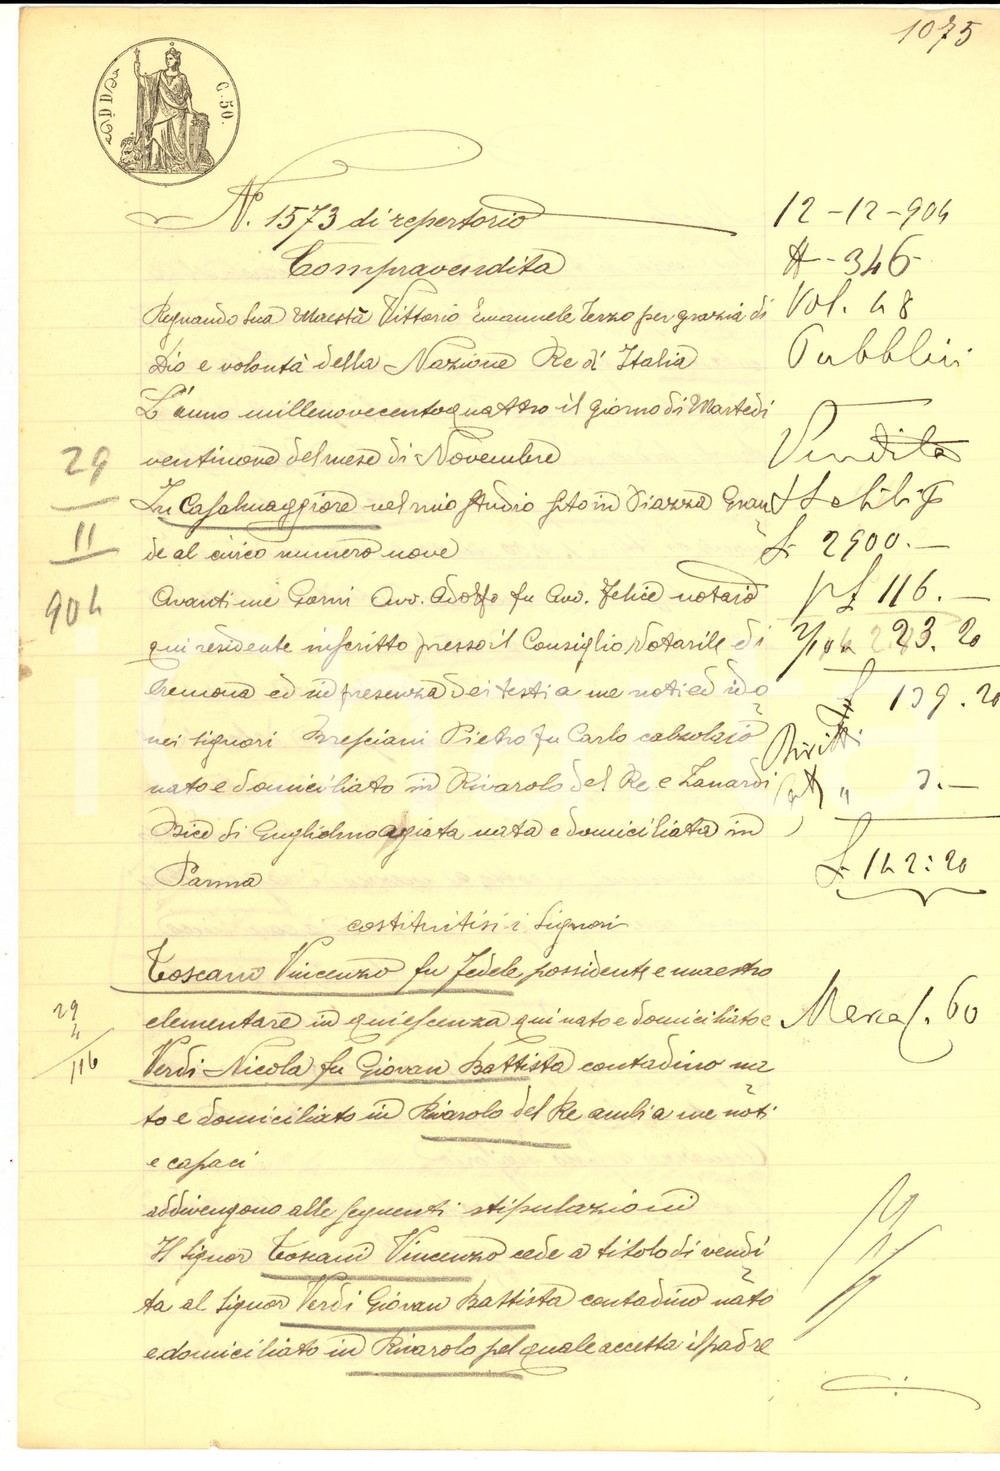 1075
C. 50.
N. 1573 di repertorio
Compravendita
Regnando Sua Maestà Vittorio Emanuele Terzo per grazia di
Dio e volontà della Nazione Re d'Italia
L'anno millenovecentoquattro il giorno di Martedi
ventinove del mese di Novembre
In Casalmaggiore nel mio studio sito in Piazza Gran
de al civico numero nove
Avanti me Gorni Avv. Adolfo fu Avv. Felice notaio
qui residente inscritto presso il Consiglio Notarile di
Cremona ed in presenza dei testi a me noti ed ido
nei signori Bresciani Pietro fu Carlo calzolajo
nato e domiciliato in Rivarolo del Re e Zanardi
Bice di Guglielmo agiata nata e domiciliata in
Parma
costituitisi i Signori
Toscani Vincenzo fu Fedele possidente e maestro
elementare in quiescenza qui nato e domiciliato e
Verdi Nicola fu Giovan Battista contadino na
to e domiciliato in Rivarolo del Re ambi a me noti
e capaci
addivengono alle seguenti stipulazioni
Il Signor Toscani Vincenzo cede a titolo di vendi
ta al Signor Verdi Giovan Battista contadino nato
e domiciliato in Rivarolo pel quale accetta il padre
12-12-904
346
Vol. 48
Pubblici
Vendita
£ 2900.—
116.—
23.20
£ 139.20
Diritti
3.—
£ 142:20
60
29
II
904
29
4
116